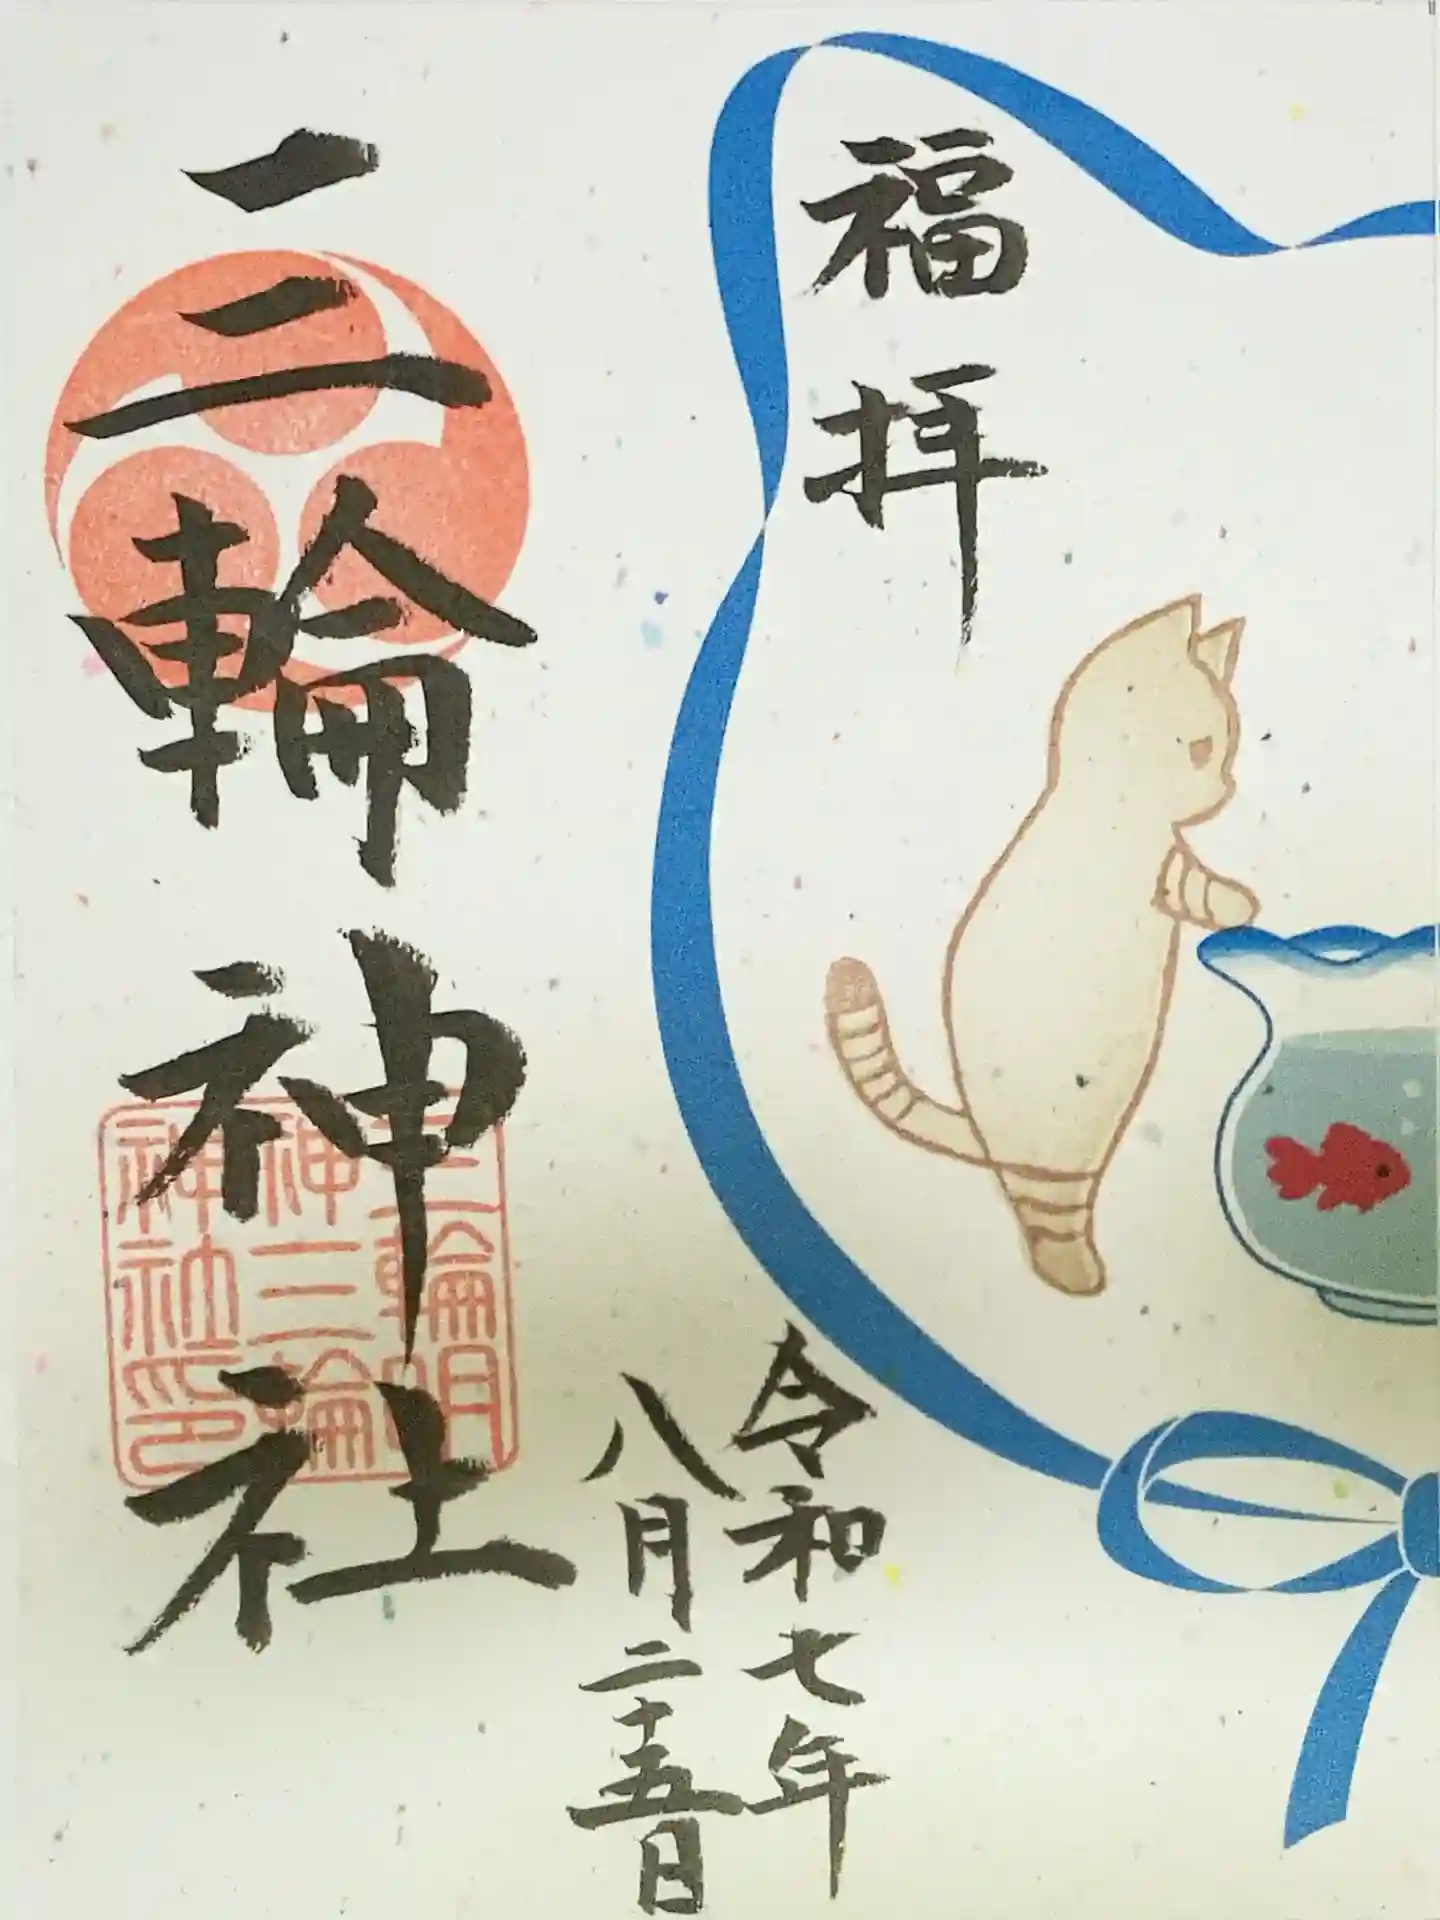 福拝
令和七年
八月二十五日
三輪神社
三輪明
神三輪
神社印